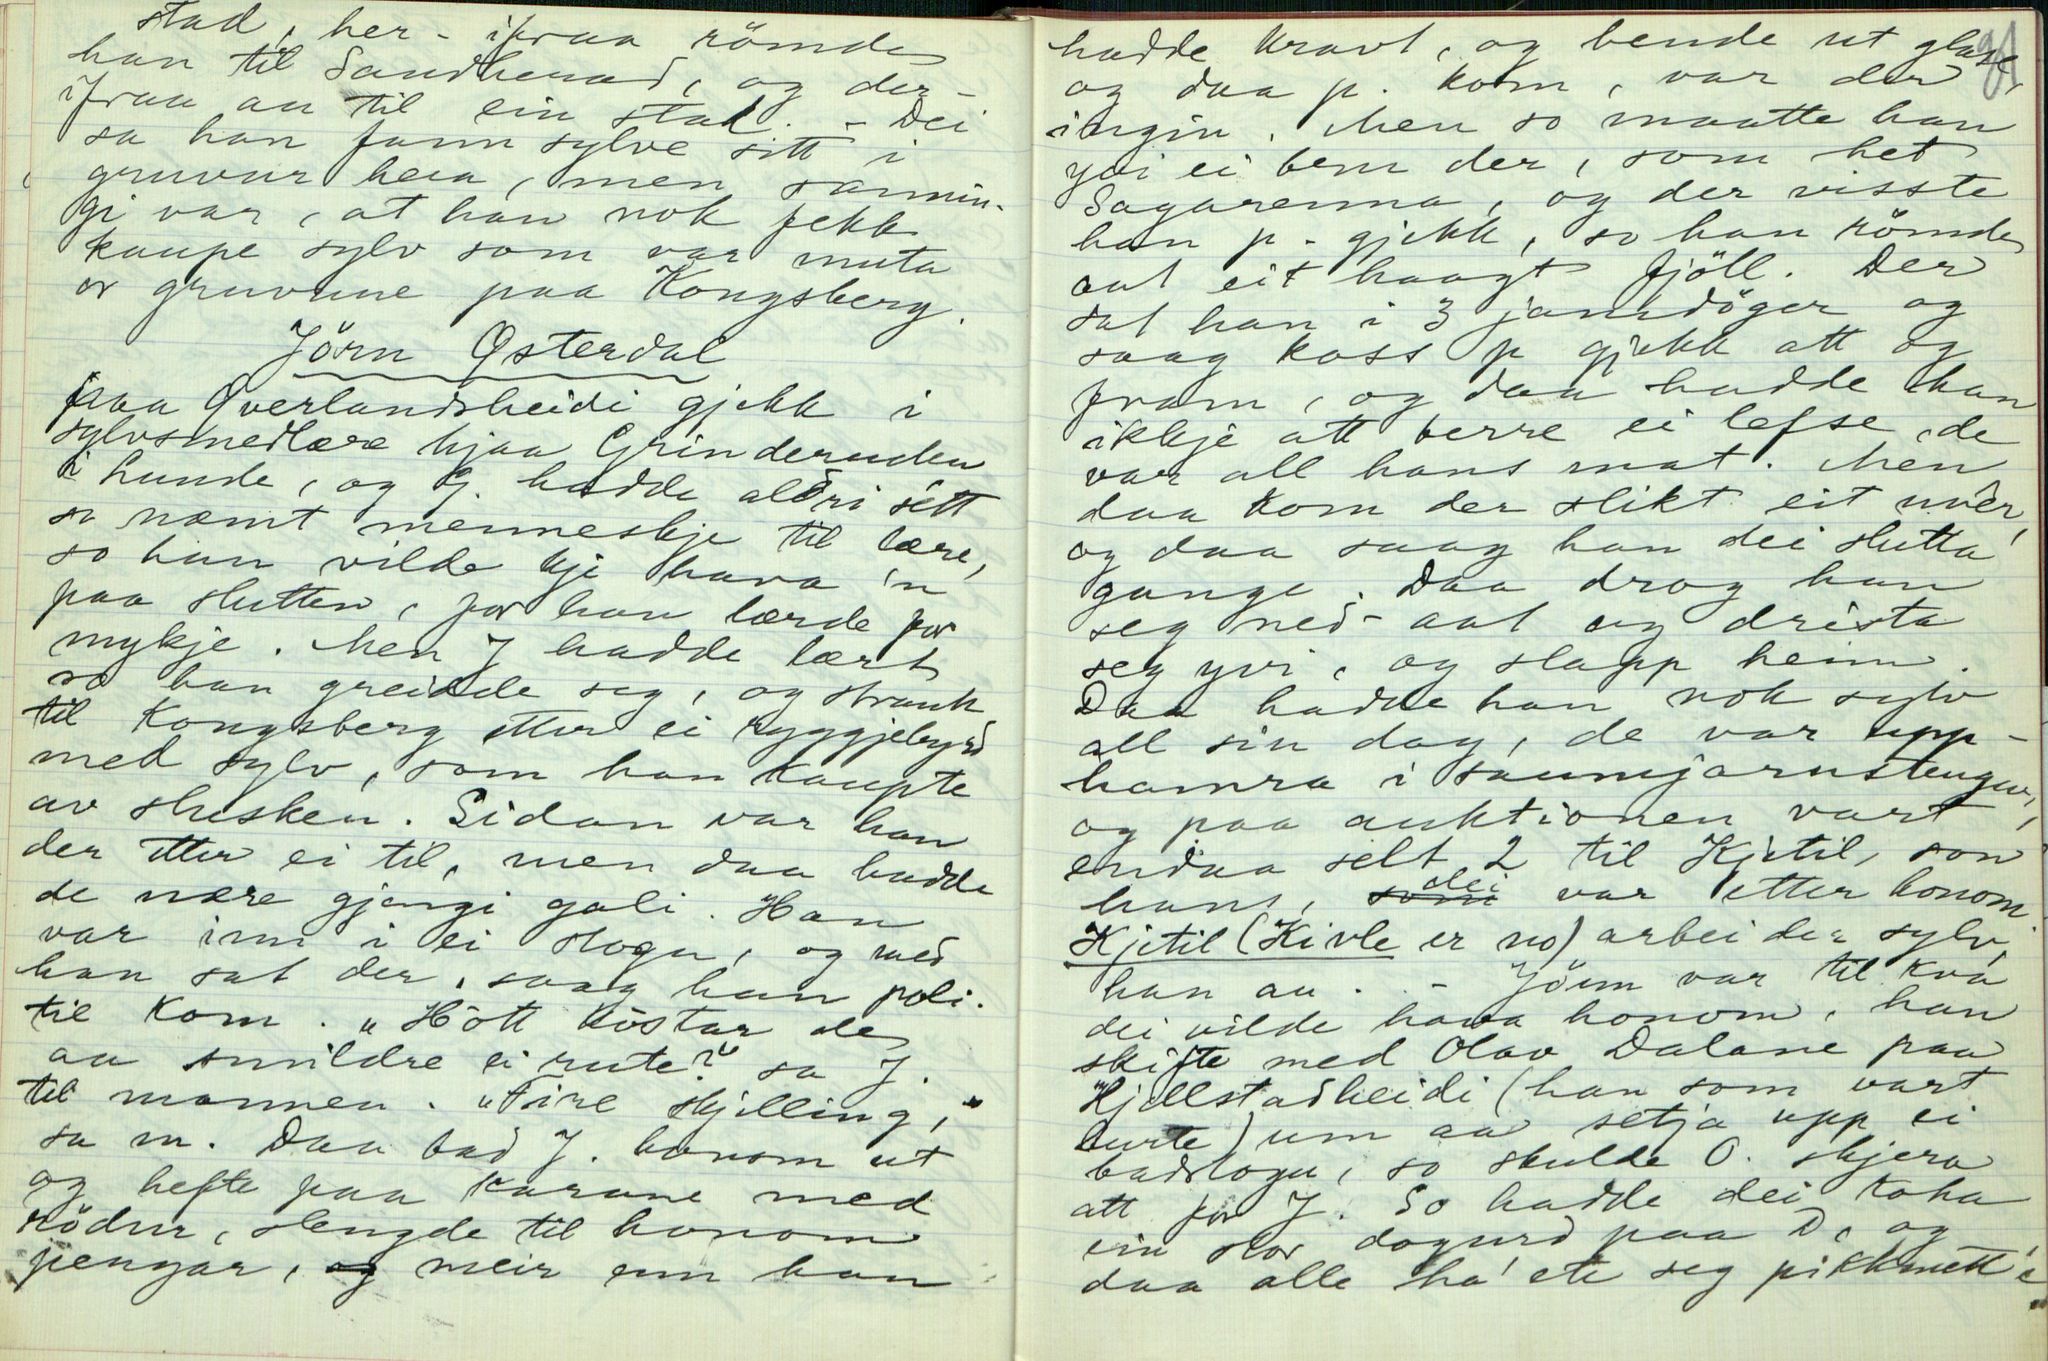 stad, her- ifraa römde
han til Sandherad, og der-
ifraa au til ein stad. - Dei
sa han fann sylve sitt i
gruvur heia, men sannin-
gi var, at han nok fekk
kaupe sylv som var muta
or gruvune paa Kongsberg.
Jörn Østerdal
paa Qverlandsheidi gjekk i
sylvsmedlære hjaa Grinderuden
i Lunde, og G. hadde aldri sétt
so næmt menneskje til lære,
so han vilde kji hava 'n
paa slutten, for han lærde for
mykje. Men J hadde lært
so han greidde seg, og strauk
til Kongsberg etter ei ryggjebyrd
med sylv, som han kaupte
av slusken. Sidan var han
der etter ei til, men daa hadde
de nære gjengi gali. Han
var inn i ei stogu, og med
han sat der, saag han poli-
til kom. "Hott köstar de
aa smildre ei rute?" sa J.
til mannen. "Fire skjelling,"
sa m. Daa bad J. honom ut
og hefte paa karane med
rödur, slengde til honom
pengar, og meir enn han
91
hadde kravt, og bende ut glase,
og daa p. kom, var der
ingin. Men so maatte han
yvi ei bru der, som het
Sagarenna, og der visste
han p- gjekk, so han römde
aat eit haagt fjöll. Der
sat han i 3 jamdöger og
saag koss p gjekk att og
fram, og daa hadde han
ikkje att berre ei lefse, de
var all hans mat. Men
daa kom der slikt eit uvêr,
og daa saag han dei slutta
gange. Daa drog han
seg ned-aat og drista
seg yvi, og slapp heim.
Daa hadde han nok sylv
all sin dag, de var upp-
hamra i saumjarnstenger,
og paa auktionen vart
endaa selt 2 til Kjetil, son
hans, som dei var etter honom.
Kjetil (Kivle er no) arbeider sylv,
han au. - Jörn var til kva
dei vilde hava honom, han
skifte med Olav Dalane paa
Hjellstadheidi (han som vart
burte) um aa setja upp ei
badstogu, so skulde O. skjera
att for J. So hadde dei koka
ein stor dogurd paa D, og
daa alle ha' ete seg pikkmett'e